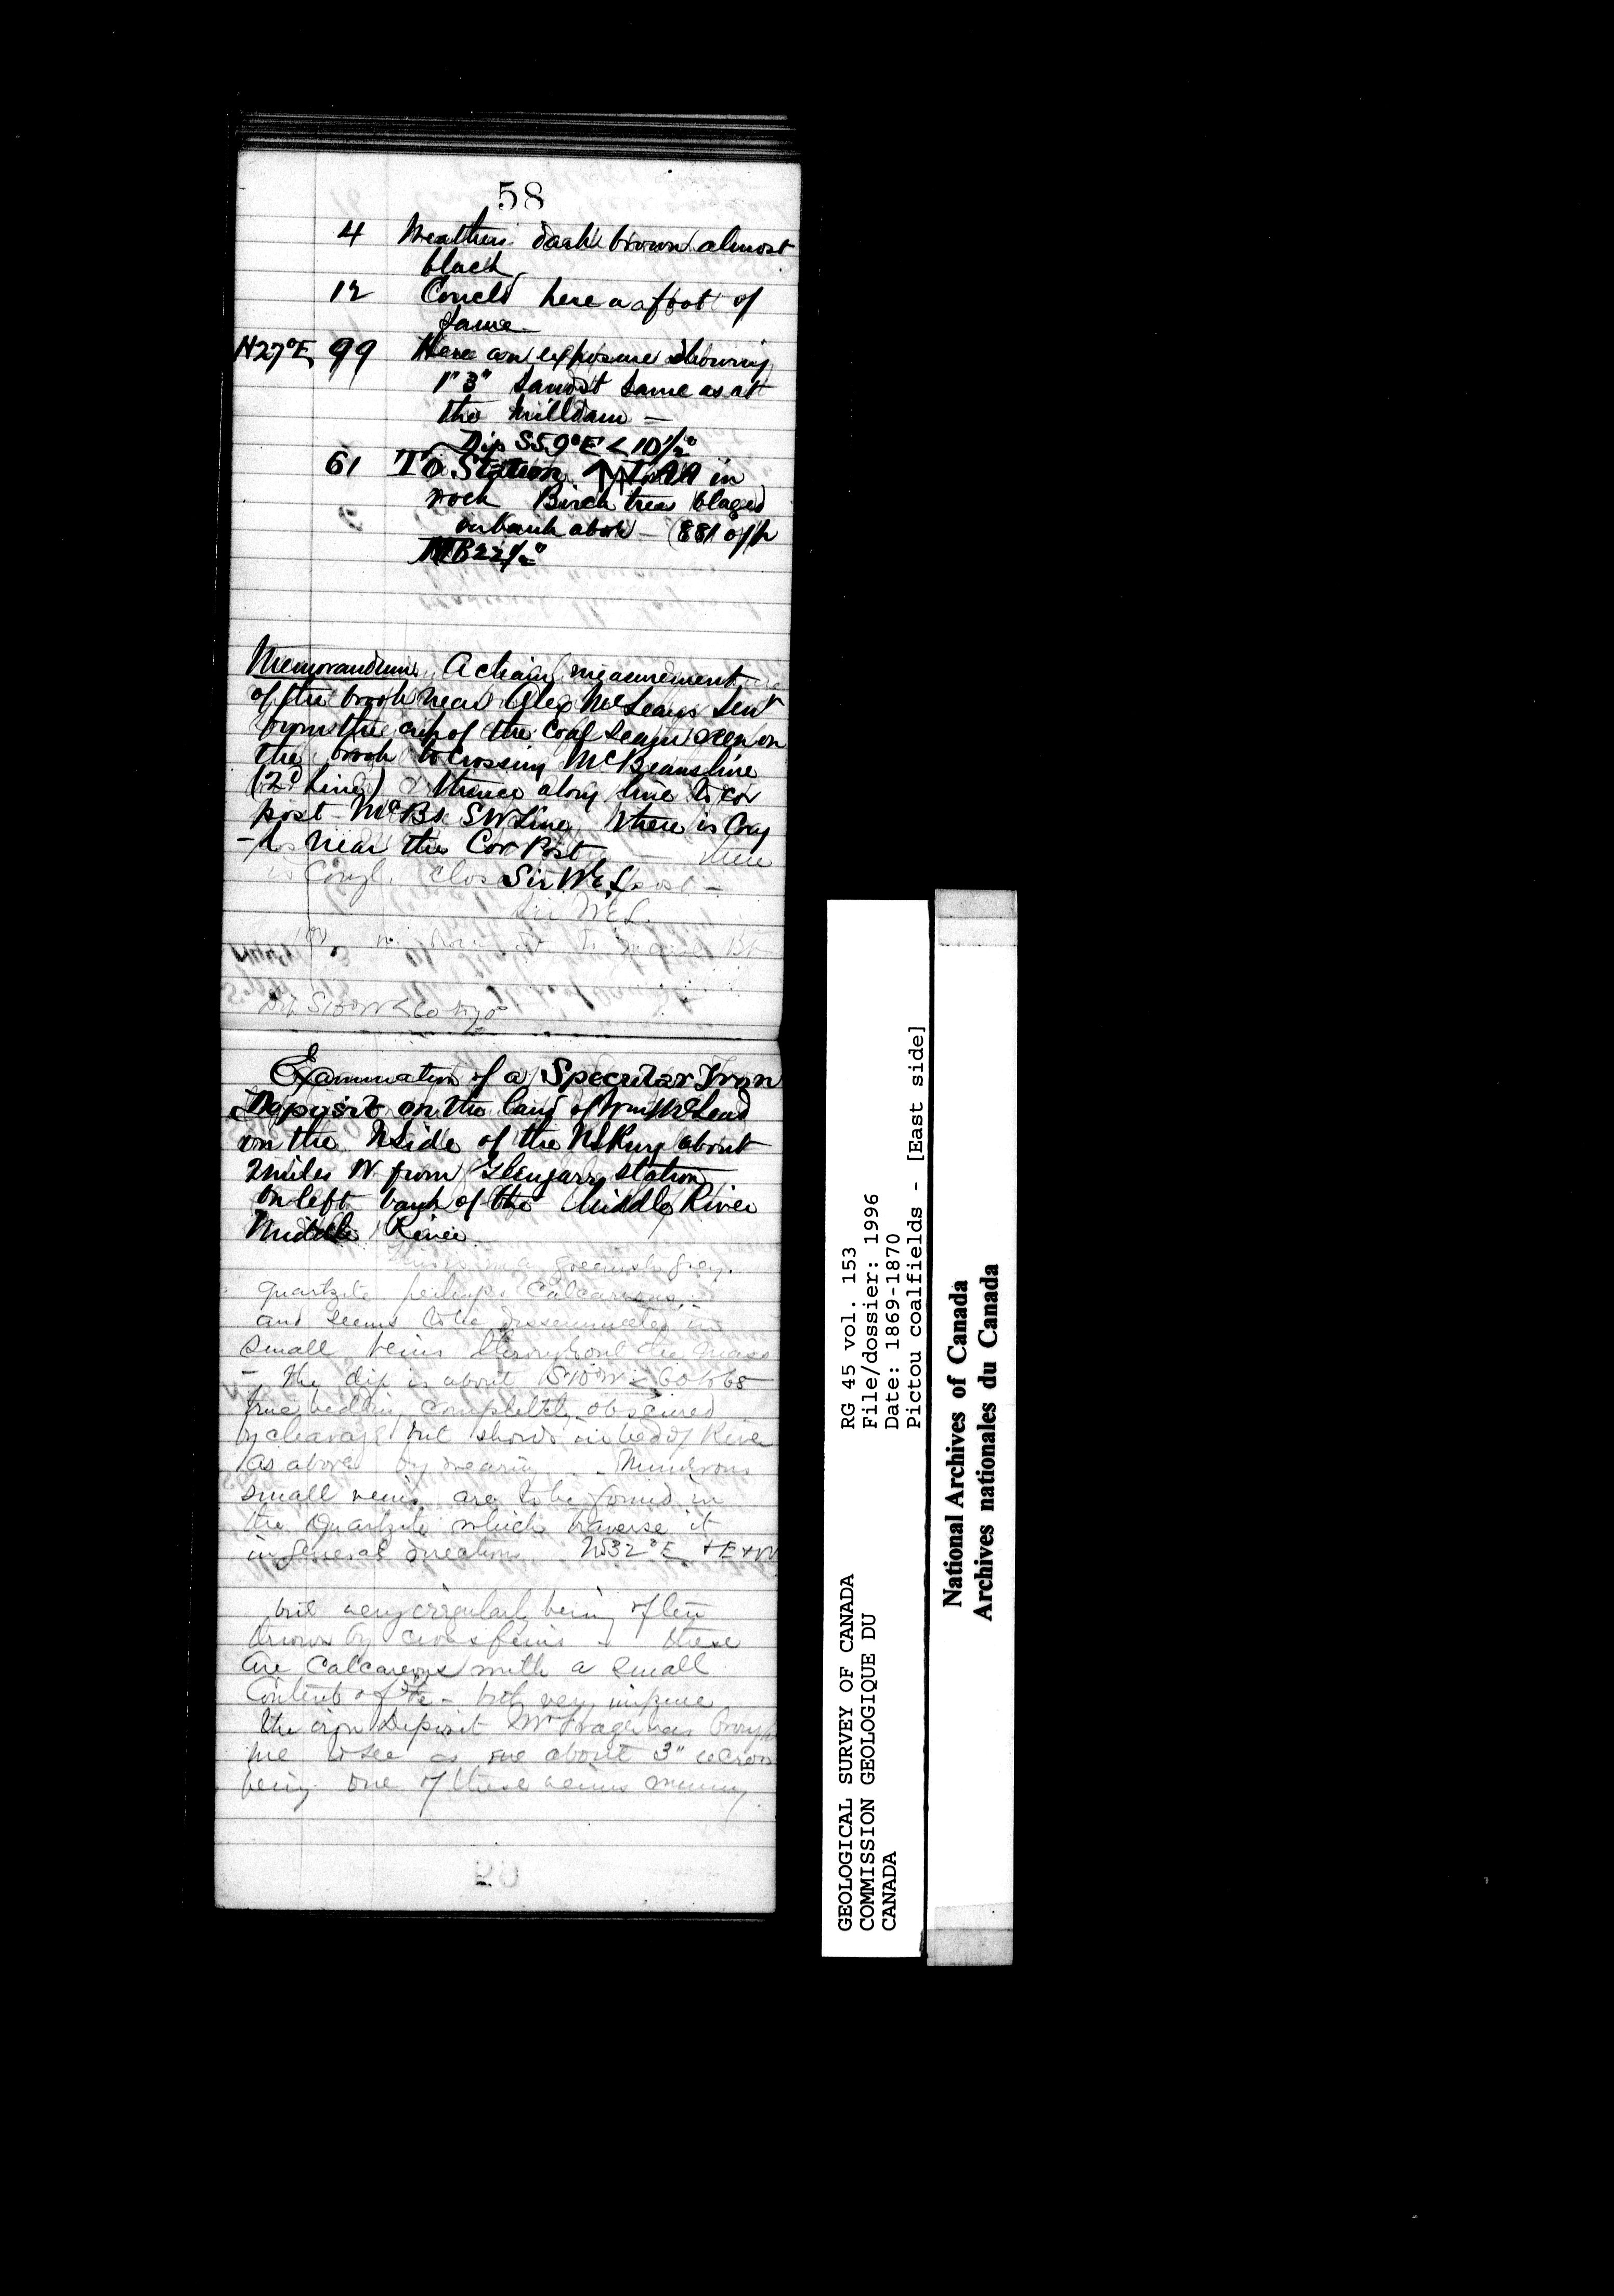 58
4 Weathers dark brown almost
black
12 Conceld here a foot of
same
N27°E 99 Here an exposure showing
1' 3" Sandst same as at
the Milldam —
Dip S59°E < 10½°
61 To Station in
rock Birch tree blazed
on bank above — (881 of h
22½°
Memorandum A chain measurement
of the brook near Alex McLeans
from the crop of the Coal Seam seen on
the brook to crossing McBeans line
(2d Line) & thence along line to cor
post McBs SW Line, there is Cong
near the Cor Post there
is Congl. close Sir W E L post —
Sir W E L.
Dip S10°W < 60 to 70°
Examination of a Specular Iron
Deposit on the land of Wm McLeod
on the N Side of the NS Rwy about
2 miles W from Glengarry Station
on left bank of the Middle River
Middle River
This is in a greenish grey
quartzite perhaps Calcareous,
and seems to be disseminated in
small veins throughout the mass
— The dip is about S10°W < 60 to 65
true bedding completely obscured
by cleavage but shows in bed of River
as above by wearing. Numerous
small veins are to be found in
the Quartzite which traverse it
in general direction N32°E + E + W
but very irregular being often
thrown by cross veins these
are Calcareous with a small
Content of Fe — both very impure
the iron Deposit Mr Fraser has
me to see is one about 3" across
being one of these veins running
GEOLOGICAL SURVEY OF CANADA
COMMISSION GEOLOGIQUE DU
CANADA
RG 45 vol. 153
File/dossier: 1996
Date: 1869-1870
Pictou coalfields - [East side]
National Archives of Canada
Archives nationales du Canada